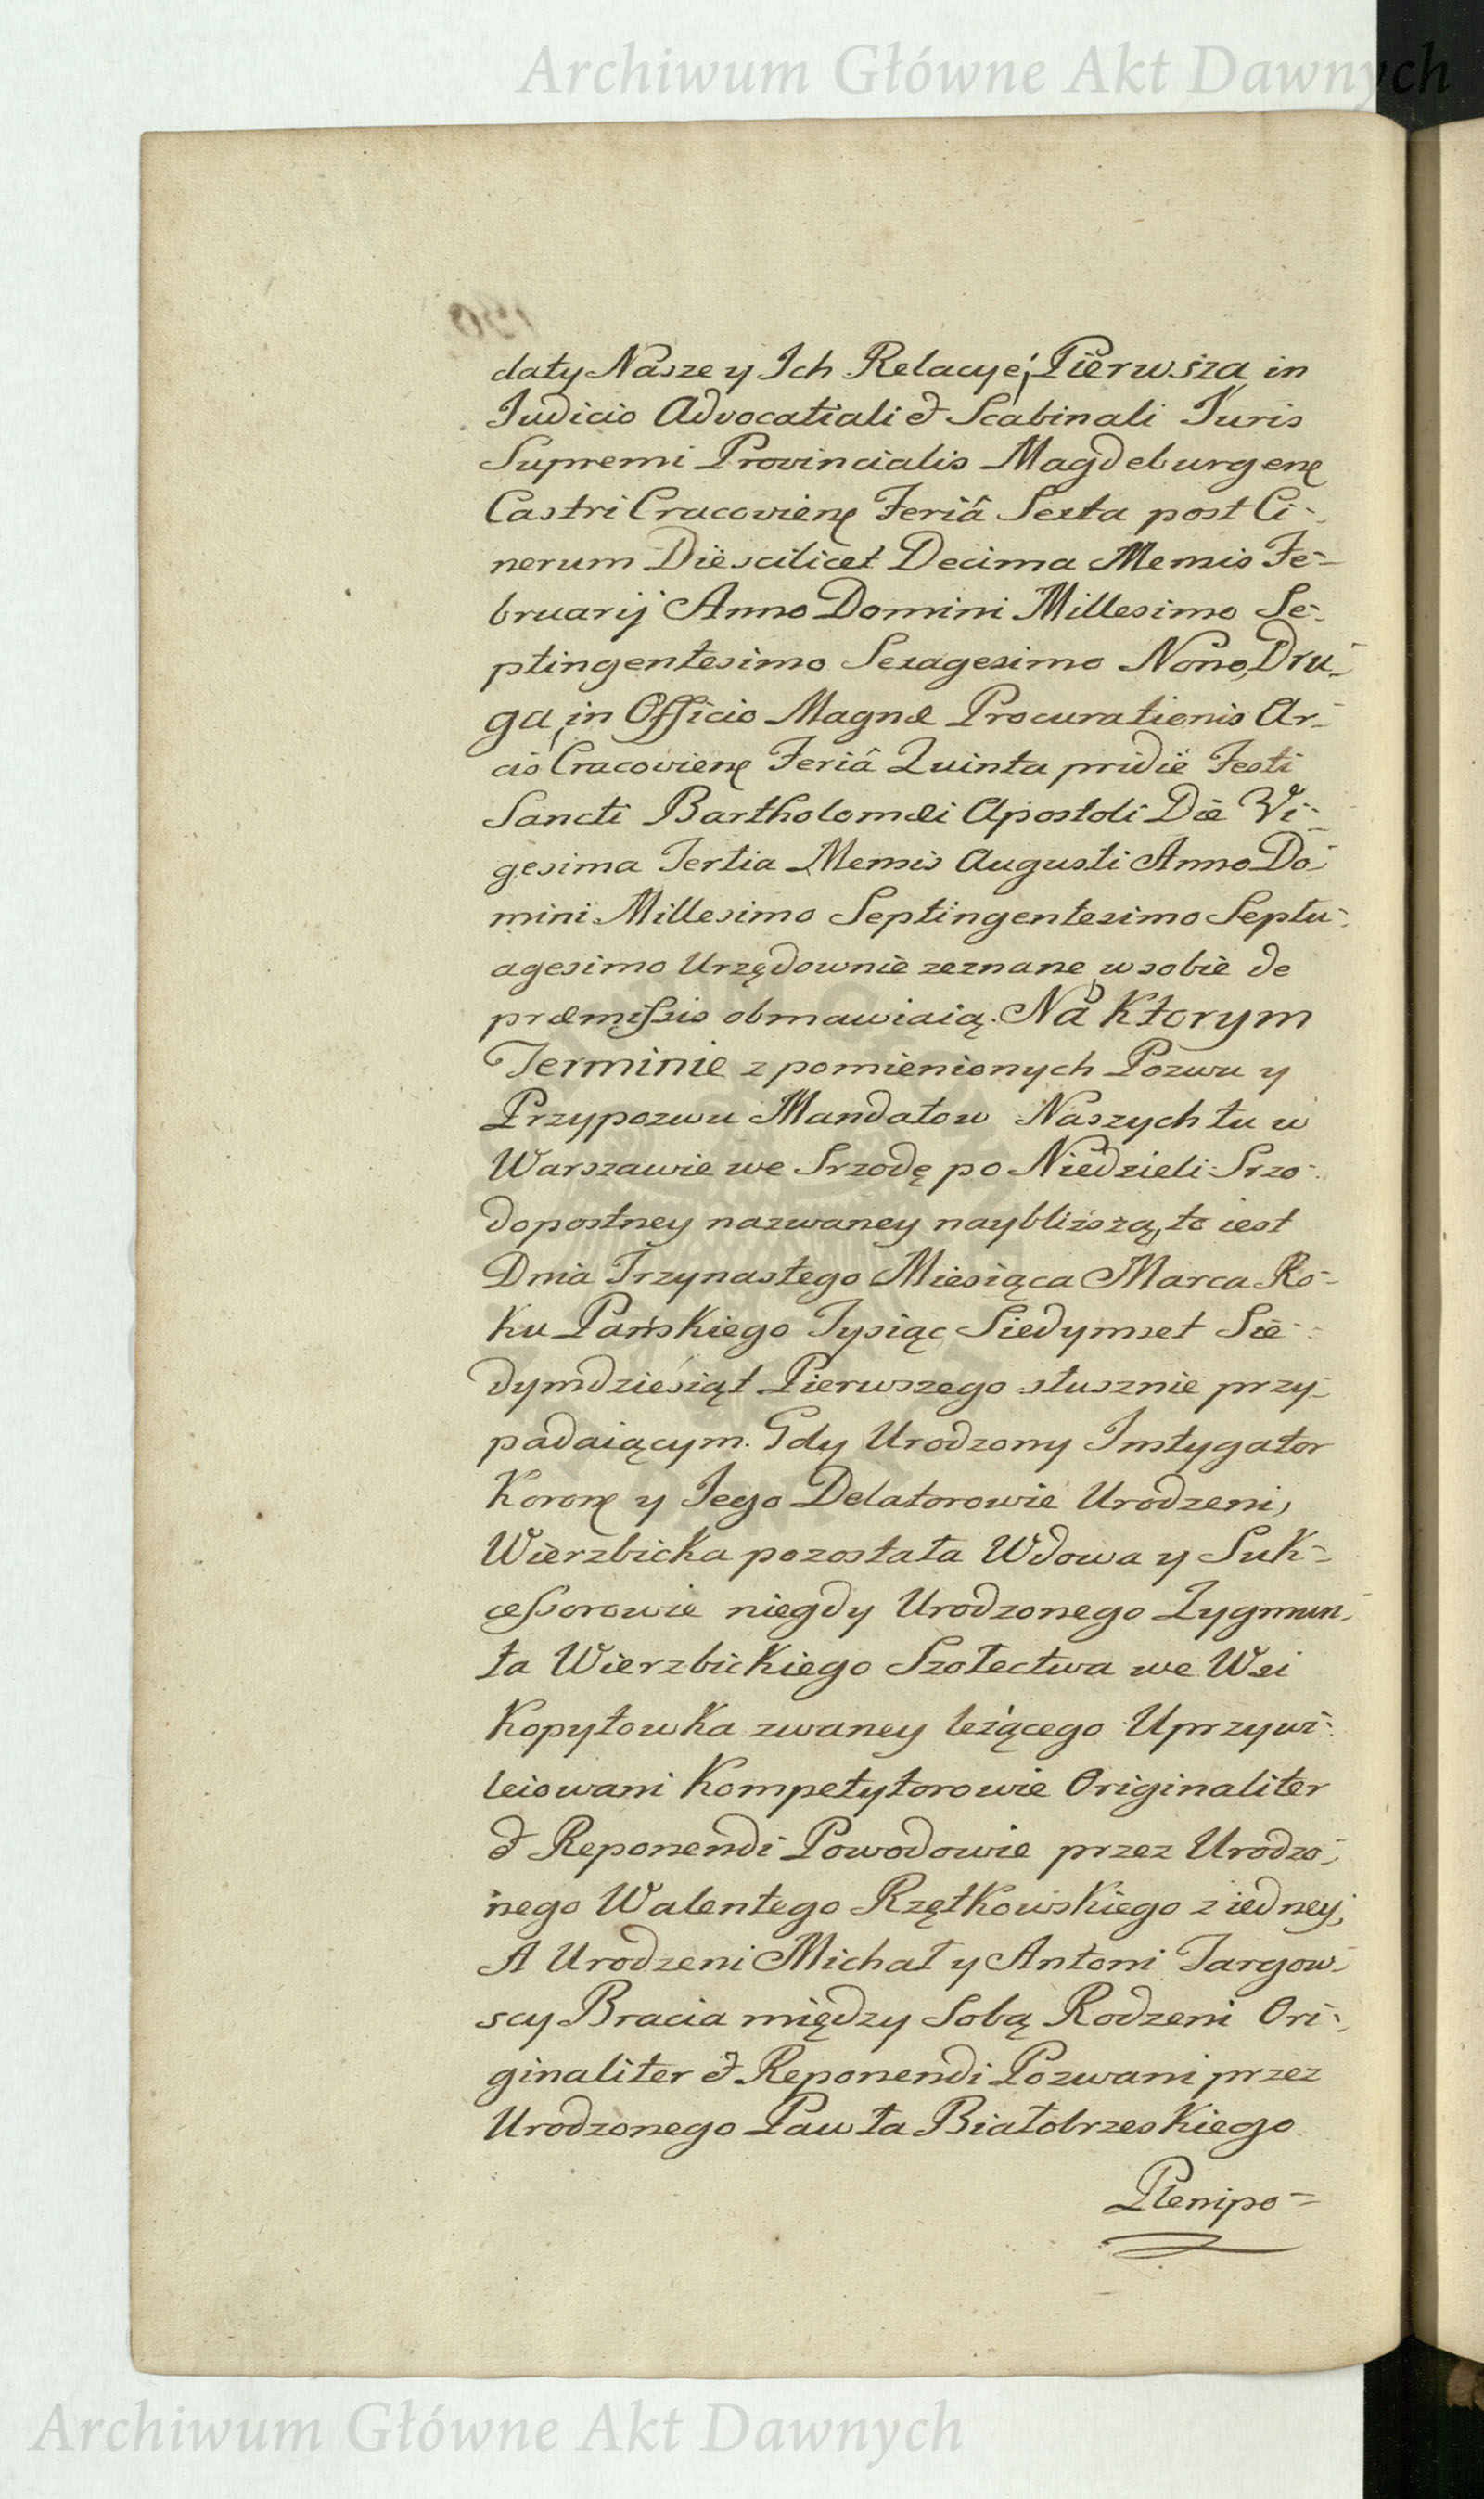 Archiwum Główne Akt Dawnych
daty Nasze y Ich Relacye, Pierwsza in
Judicio Advocatiali & Scabinali Juris
Supremi Provincialis Magdeburgen
Castri Cracovien Feriâ Sexta post Ci-
nerum Die scilicet Decima Mensis Fe-
bruarij Anno Domini Millesimo Se-
ptingentesimo Sexagesimo Nono, Dru-
ga, in Officio Magnæ Procurationis Ar-
cis Cracovien Feriâ Quinta pridie Festi
Sancti Bartholomæi Apostoli Die Vi-
gesima Tertia Mensis Augusti Anno Do-
mini Millesimo Septingentesimo Septu-
agesimo Urzędownie zeznane w sobie de
præmissis obmawiaią. Na Ktorym
Terminie z pomienionych Pozwu y
Przypozwu Mandatow Naszych tu w
Warszawie we Srzodę po Niedzieli Srzo-
dopostney nazwaney naybliższą, to iest
Dnia Trzynastego Miesiąca Marca Ro-
ku Pańskiego Tysiąc Siedymset Sie-
dymdziesiąt Pierwszego słusznie przy-
padaiącym. Gdy Urodzony Instygator
Koron y Jego Delatorowie Urodzeni,
Wierzbicka pozostała Wdowa y Suk-
cessorowie niegdy Urodzonego Zygmun-
ta Wierzbickiego Szołectwa we Wsi
Kopytowka zwaney leżącego Uprzywi-
leiowani Kompetytorowie Originaliter
& Reponendi Powodowie przez Urodzo-
nego Walentego Rzętkowskiego z iedney,
A Urodzeni Michał y Antoni Targow-
scy Bracia między Sobą Rodzeni Ori-
ginaliter & Reponendi Pozwani przez
Urodzonego Pawła Białobrzeskiego
Plenipo-
Archiwum Główne Akt Dawnych